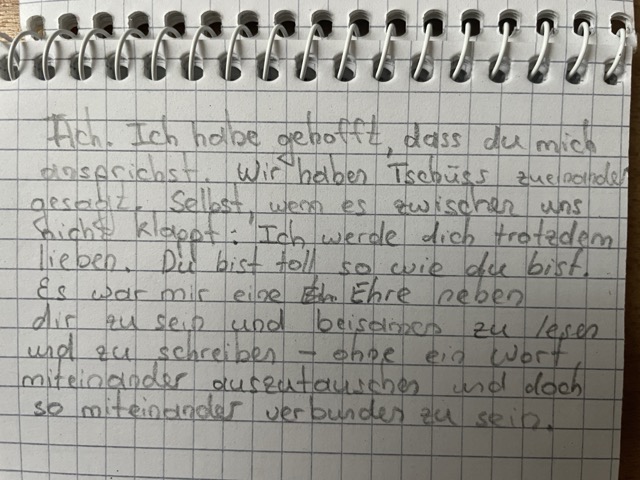 Ach. Ich habe gehofft, dass du mich
ansprichst. Wir haben Tschüss zueinander
gesagt. Selbst, wenn es zwischen uns
nicht klappt: Ich werde dich trotzdem
lieben. Du bist toll so wie du bist.
Es war mir eine Ehre neben
dir zu sein und beisammen zu lesen
und zu schreiben – ohne ein Wort
miteinander auszutauschen und doch
so miteinander verbunden zu sein.